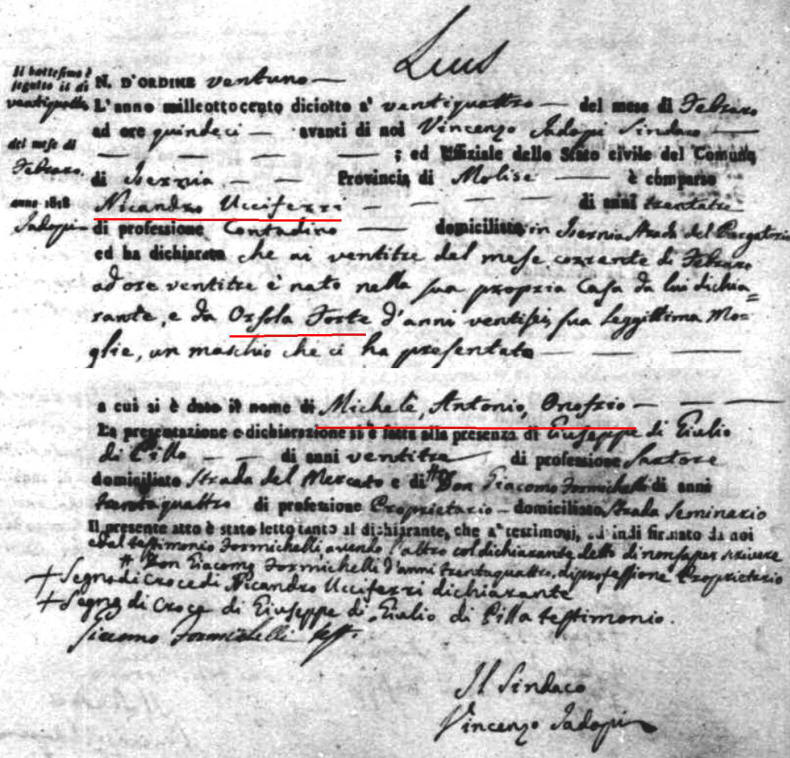 Il battesimo è
seguito il dì
ventiquattro
del mese di
Febraro
anno 1818
Jadopi
N. D'ORDINE ventuno —
L'anno milleottocento diciotto a' ventiquattro — del mese di Febraro
ad ore quindeci — avanti di noi Vincenzo Jadopi Sindaco —
— — — — ; ed Uffiziale dello Stato civile del Comune
di Isernia — — Provincia di Molise — è comparso
Nicandro Ucciferri — — — — di anni trentatre
di professione Contadino — domiciliato in Isernia Strada del Purgatorio
ed ha dichiarato che ai ventitre del mese corrente di Febraro
ad ore ventitre è nato nella sua propria Casa da lui dichia=
rante, e da Orsola Forte d'anni ventisei, sua leggittima Mo=
glie, un maschio che ci ha presentato — — —
a cui si è dato il nome di Michele, Antonio, Onofrio — — —
La presentazione e dichiarazione si è fatta alla presenza di Giuseppe di Giulio
di Cillo — — di anni ventitre di professione Sartore
domiciliato Strada del Mercato e di Don Giacomo Formichelli di anni
trentaquattro di professione Proprietario — domiciliato Strada Seminario
Il presente atto è stato letto tanto al dichiarante, che a' testimonj, ed indi firmato da noi
e dal testimonio Formichelli avendo l'altro col dichiarante detto di non saper scrivere
Don Giacomo Formichelli d'anni trentaquattro, di professione Proprietario
+ Segno di Croce di Nicandro Ucciferri dichiarante
+ Segno di Croce di Giuseppe di Giulio di Cilla testimonio.
Giacomo Formichelli test.
Il Sindaco
Vincenzo Jadopi